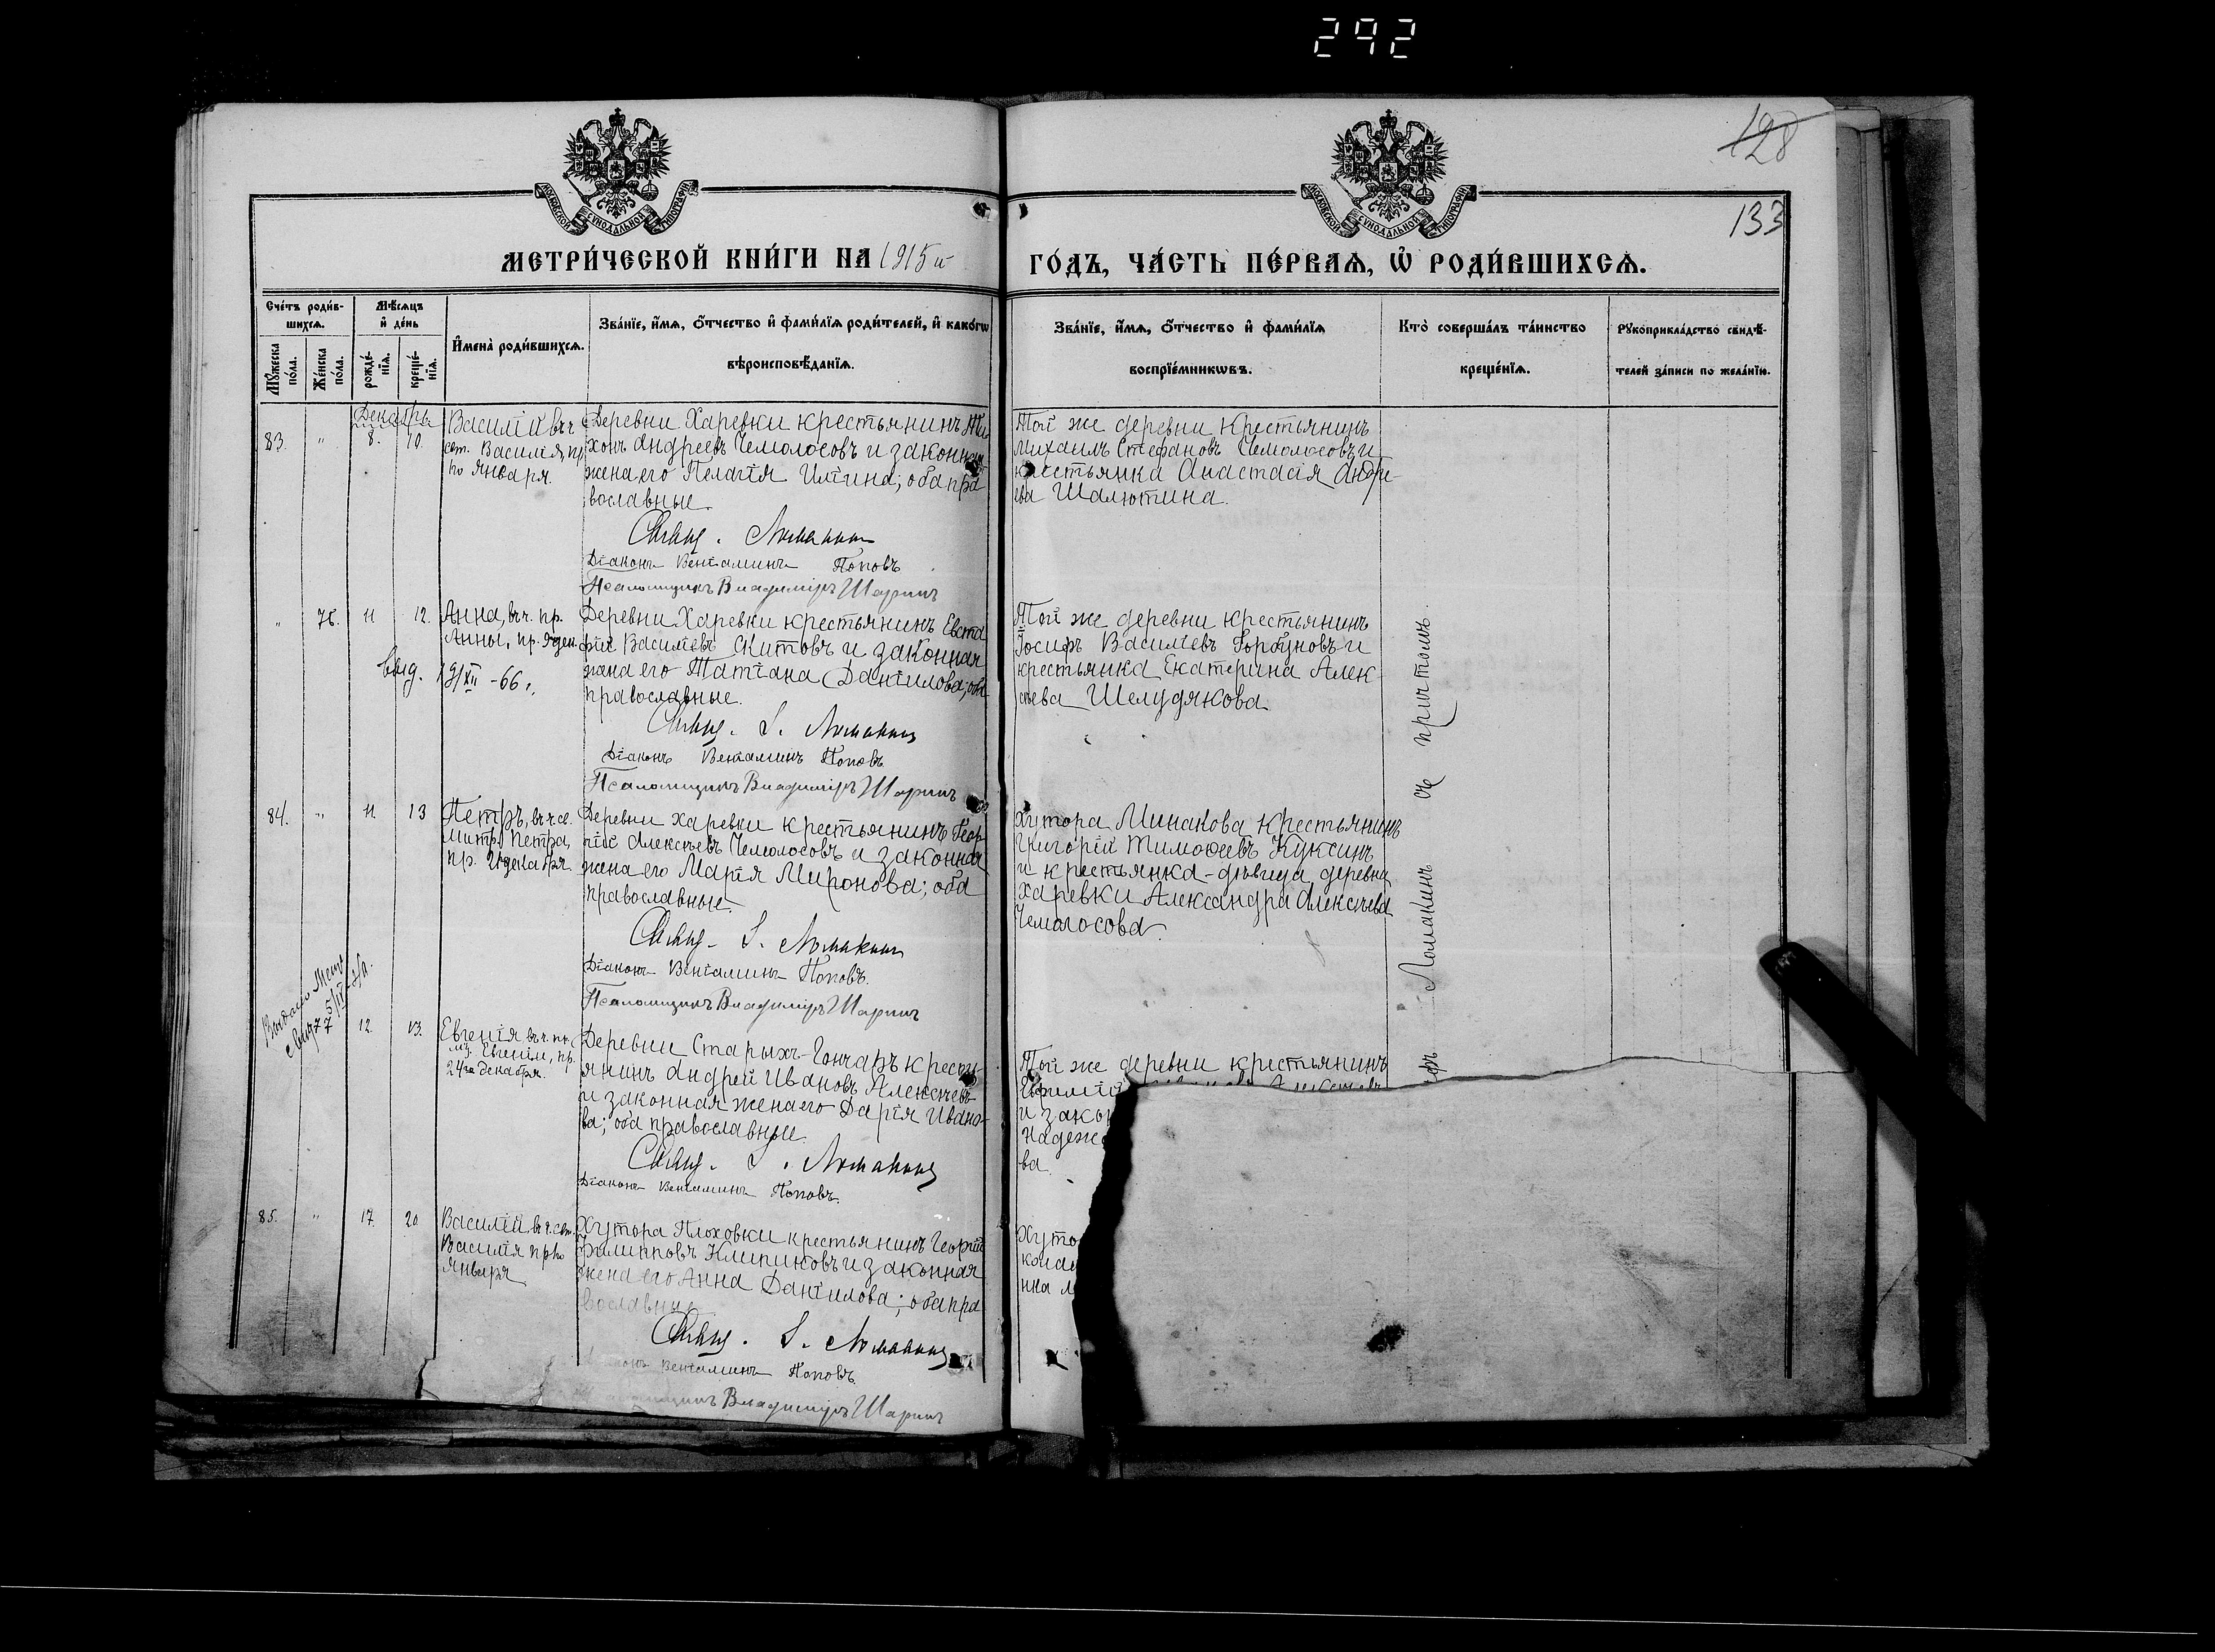 292
128
133
МОСКОВСКОЙ СѴНОДАЛЬНОЙ ТИПОГРАФІИ
МОСКОВСКОЙ СѴНОДАЛЬНОЙ ТИПОГРАФІИ
МЕТРИ́ЧЕСКОЙ КНИ́ГИ НА 1915й ГО́ДЪ, ЧА́СТЬ ПЕ́РВАѦ, Ѡ҆ РОДИ́ВШИХСѦ.
Сче́тъ роди́в-
шихсѧ.
Мѣ́сѧцъ
и҆ де́нь
Мꙋ́жеска
по́ла.
Же́нска
по́ла.
рожде́-
нїѧ.
креще́-
нїѧ.
И҆мена̀ роди́вшихсѧ.
Зва́нїе, и҆́мѧ, ѻ҆́тчество и҆ фами́лїѧ роди́телей, и҆ како́гѡ
вѣроисповѣ́данїѧ.
Зва́нїе, и҆́мѧ, ѻ҆́тчество и҆ фами́лїѧ
воспрїе́мникѡвъ.
Кто̀ соверша́лъ та́инство
креще́нїѧ.
Рꙋкоприкла́дство свидѣ́-
телей за́писи по жела́нїю.
Декабрь
83. " 8. 10.
Василій вч
свт. Василія, пр.
1го января.
Деревни Харевки крестьянинъ Ти
хонъ Андреевъ Чемолосовъ и законная
жена его Пелагія Илiина; оба пра
вославные.
Свящ. Ломакинъ
Діаконъ Веніаминъ Поповъ
Псаломщикъ Владиміръ Шаринъ
Той же деревни крестьянинъ
Михаилъ Стефановъ Чемолосовъ и
крестьянка Анастасія Андре-
ева Шалютина.
" 76. 11 12.
Анна, вч. пр.
Анны, пр. 9 дек.
выд. 19/XII-66 г.
Деревни Харевки крестьянинъ Евста
фій Василіевъ Скитовъ и законная
жена его Татіана Даніилова; оба
православные.
Свящ. І. Ломакинъ
Діаконъ Веніаминъ Поповъ
Псаломщикъ Владиміръ Шаринъ
Той же деревни крестьянинъ
Іосифъ Василіевъ Горбуновъ и
крестьянка Екатерина Алек
сѣева Шелудякова.
84. " 11. 13
Петръ, вч св.
митр. Петра,
пр. 21 декабря.
Деревни Харевки крестьянинъ Геор
гій Алексѣевъ Чемолосовъ и законная
жена его Марія Миронова; оба
православные.
Свящ. І. Ломакинъ
Діаконъ Веніаминъ Поповъ.
Псаломщикъ Владиміръ Шаринъ
Хутора Минакова крестьянинъ
Григорій Тимоѳеевъ Куксинъ
и крестьянка-дѣвица деревни
Харевки Александра Алексѣева
Чемолосова.
Ломакинъ съ причтомъ.
Выдано
77 12. 13.
Евгенія вч. пр.
мц. Евгеніи, пр.
24го декабря.
Деревни Старыхъ-Гончаръ кресть
янинъ Андрей Ивановъ Алексѣевъ
и законная жена его Дарія Ивано-
ва; оба православные.
Свящ. І. Ломакинъ
Діаконъ Веніаминъ Поповъ.
Той же деревни крестьянинъ
Ефимій
и закон
Надежд
ва.
85. " 17. 20
Василій вч. свт.
Василія пр 1го
Января
Хутора Плоховки крестьянинъ Георгій
Филипповъ Клипиковъ и законная
жена его Анна Даніилова; оба пра
вославные
Свящ. І. Ломакинъ
Веніаминъ Поповъ.
Владиміръ Шаринъ
Хуто
нка